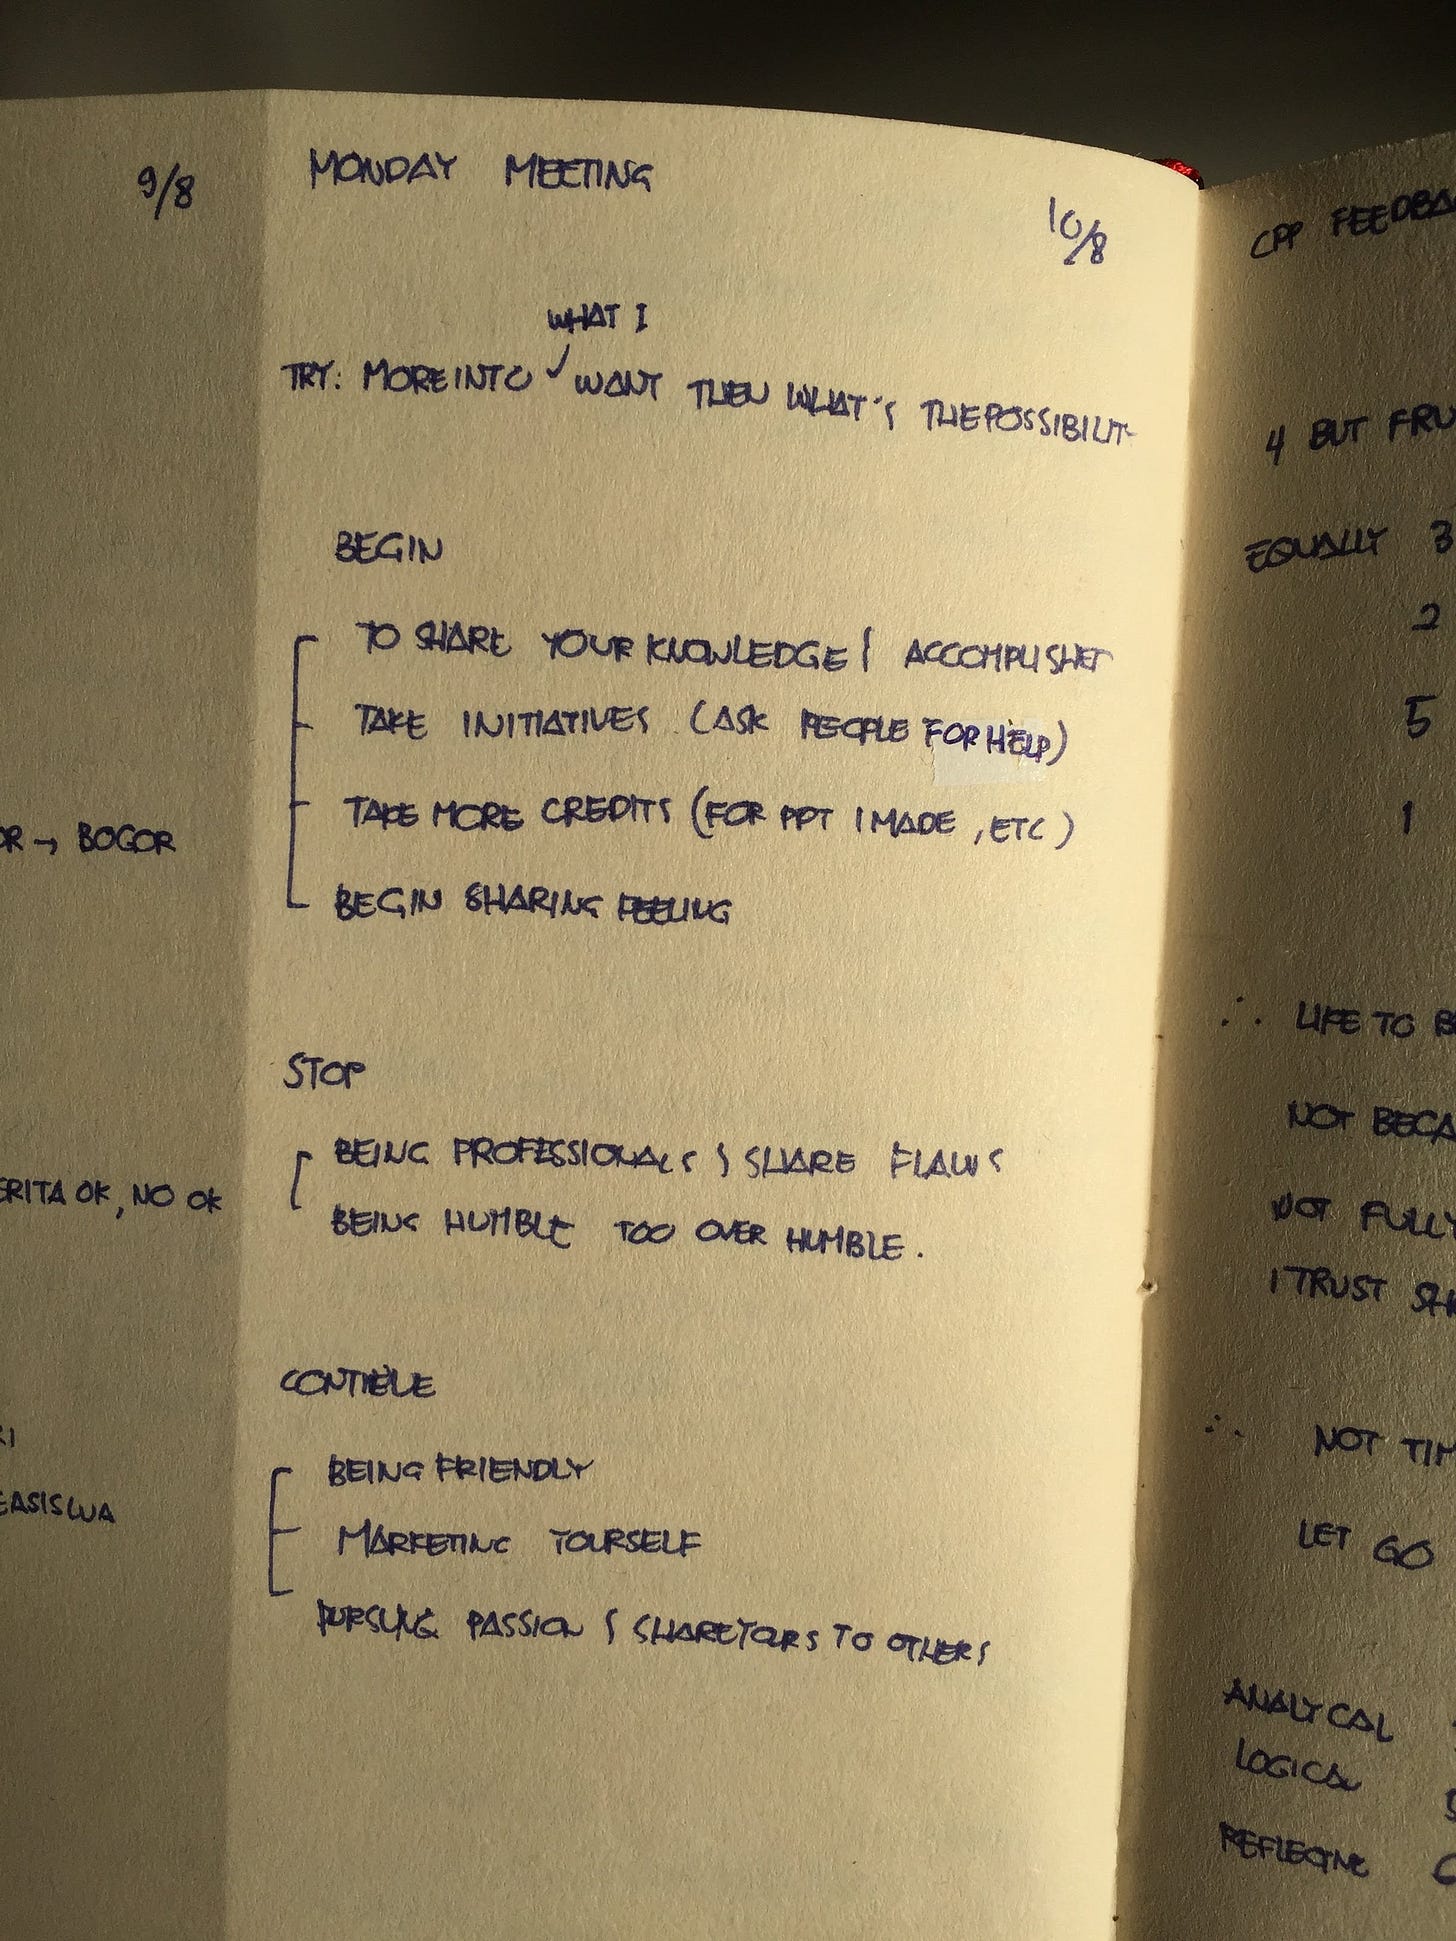 9/8
OR → BOGOR
ERITA OK, NO OK
EASISWA
MONDAY MEETING
10/8
WHAT I
TRY: MORE INTO ✓ WANT THEN WHAT'S THE POSSIBILIT
BEGIN
TO SHARE YOUR KNOWLEDGE & ACCOMPLISHET
TAKE INITIATIVES (ASK PEOPLE FOR HELP)
TAKE MORE CREDITS (FOR PPT I MADE, ETC)
BEGIN SHARING FEELING
STOP
BEING PROFESSIONALS & SHARE FLAWS
BEING HUMBLE TOO OVER HUMBLE.
BEING FRIENDLY
MARKETING YOURSELF
PASSION & SHARE YOURS TO OTHERS
CPP FEEDBA
4 BUT FRU
EQUALLY 3
2
5
1
∴ LIFE TO B
NOT BECA
NOT FULLY
I TRUST SH
∴ NOT TIM
LET GO
ANALYCAL
LOGICAL
REFLECTIVE